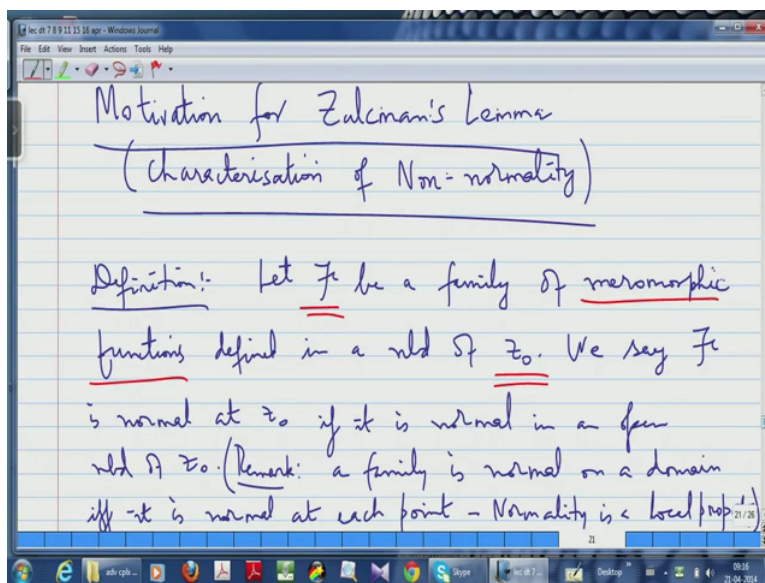 lec dt 7 8 9 11 15 16 apr - Windows Journal
File Edit View Insert Actions Tools Help
Motivation for Zalcman's Lemma
(Characterisation of Non-normality)
Definition:- Let F be a family of meromorphic
functions defined in a nbd of z₀. We say F
is normal at z₀ if it is normal in an open
nbd of z₀. (Remark: a family is normal on a domain
iff it is normal at each point - Normality is a local prop
21 / 26
21
adv cplx ...
Skype
lec dt 7 ...
Desktop
09:16
21-04-2014